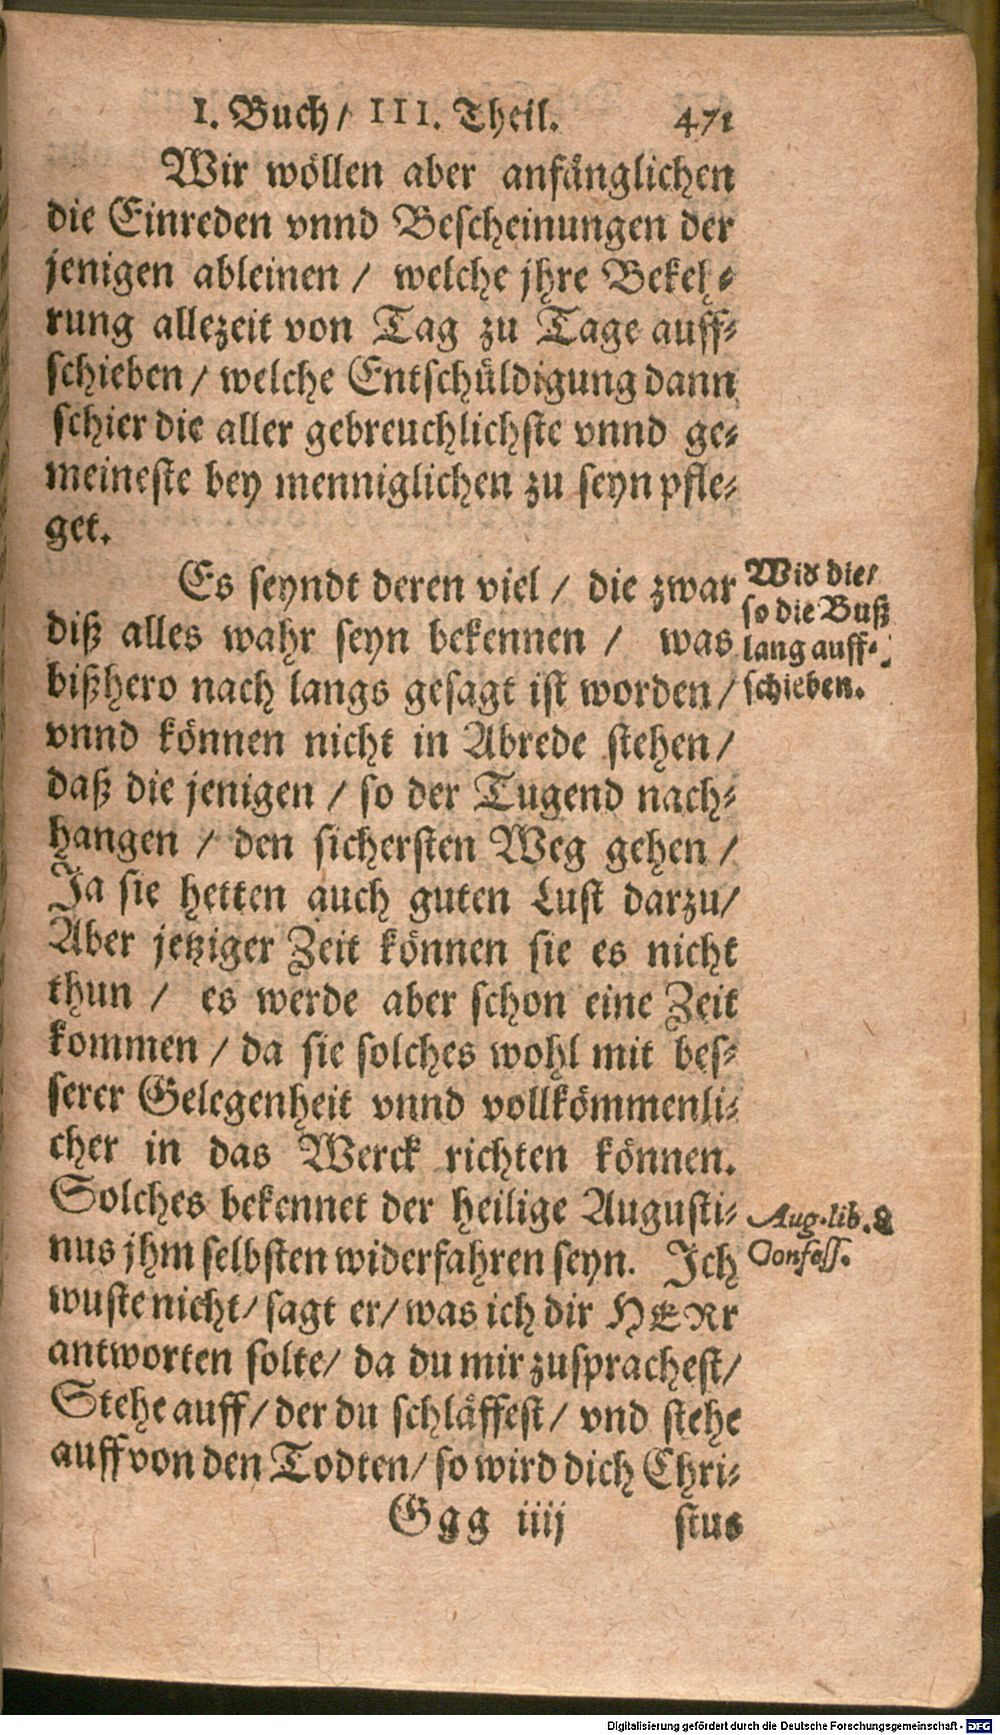 I. Buch/ III. Theil. 471
Wir wöllen aber anfänglichen
die Einreden vnnd Bescheinungen der
jenigen ableinen / welche jhre Bekeh-
rung allezeit von Tag zu Tage auff-
schieben / welche Entschüldigung dann
schier die aller gebreuchlichste vnnd ge-
meineste bey menniglichen zu seyn pfle-
get.
Es seyndt deren viel / die zwar
diß alles wahr seyn bekennen / was
bißhero nach langs gesagt ist worden /
vnnd können nicht in Abrede stehen /
daß die jenigen / so der Tugend nach-
hangen / den sichersten Weg gehen /
Ja sie hetten auch guten Lust darzu /
Aber jetziger Zeit können sie es nicht
thun / es werde aber schon eine Zeit
kommen / da sie solches wohl mit bes-
serer Gelegenheit vnnd vollkömmenli-
cher in das Werck richten können.
Solches bekennet der heilige Augusti-
nus jhm selbsten widerfahren seyn. Ich
wuste nicht / sagt er / was ich dir HERr
antworten solte / da du mir zusprachest /
Stehe auff / der du schläffest / vnd stehe
auff von den Todten / so wird dich Chri-
Ggg iiij stus
Wid die /
so die Buß
lang auff-
schieben.
Aug. lib. 8
Confess.
Digitalisierung gefördert durch die Deutsche Forschungsgemeinschaft - DFG